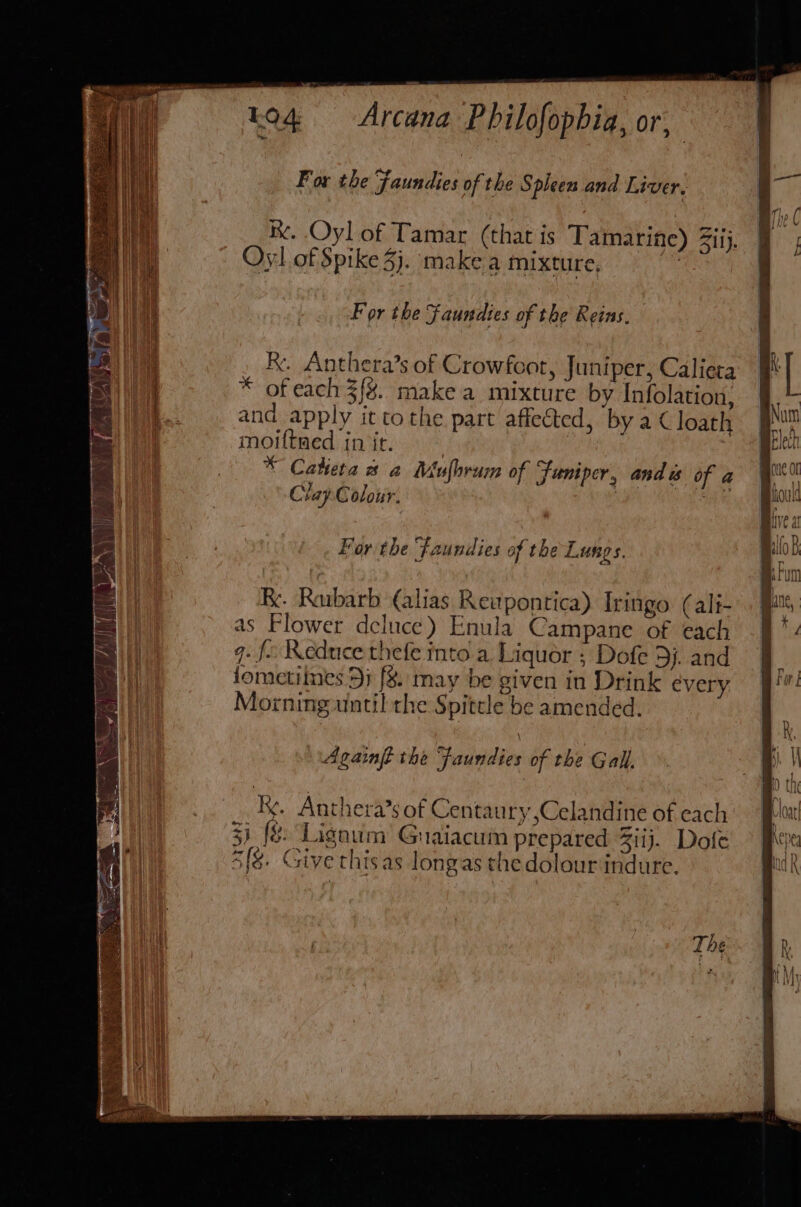 104 Arcana Philoſophia, or,
For the Jaundies of the Spleen and Liver.
℞. Oyl of Tamar (that is Tamarine) ℥iij.
Oyl of Spike ʒj. make a mixture.
For the Jaundies of the Reins.
℞. Anthera's of Crowfoot, Juniper, Calieta
* of each ʒſ8. make a mixture by Inſolation,
and apply it to the part affected, by a Cloath
moiſtned in it.
* Calieta is a Muſhrum of Juniper, and is of a
Clay Colour.
For the Jaundies of the Lungs.
℞. Rubarb (alias Reupontica) Iringo (ali-
as Flower deluce) Enula Campane of each
q. ſ. Reduce theſe into a Liquor; Doſe ℈j. and
ſometimes ℈j ſ8. may be given in Drink every
Morning until the Spittle be amended.
Againſt the Jaundies of the Gall.
℞. Anthera's of Centaury, Celandine of each
ʒj ſ8. Lignum Guaiacum prepared ℥iij. Doſe
ʒſ8. Give this as long as the dolour indure.
The